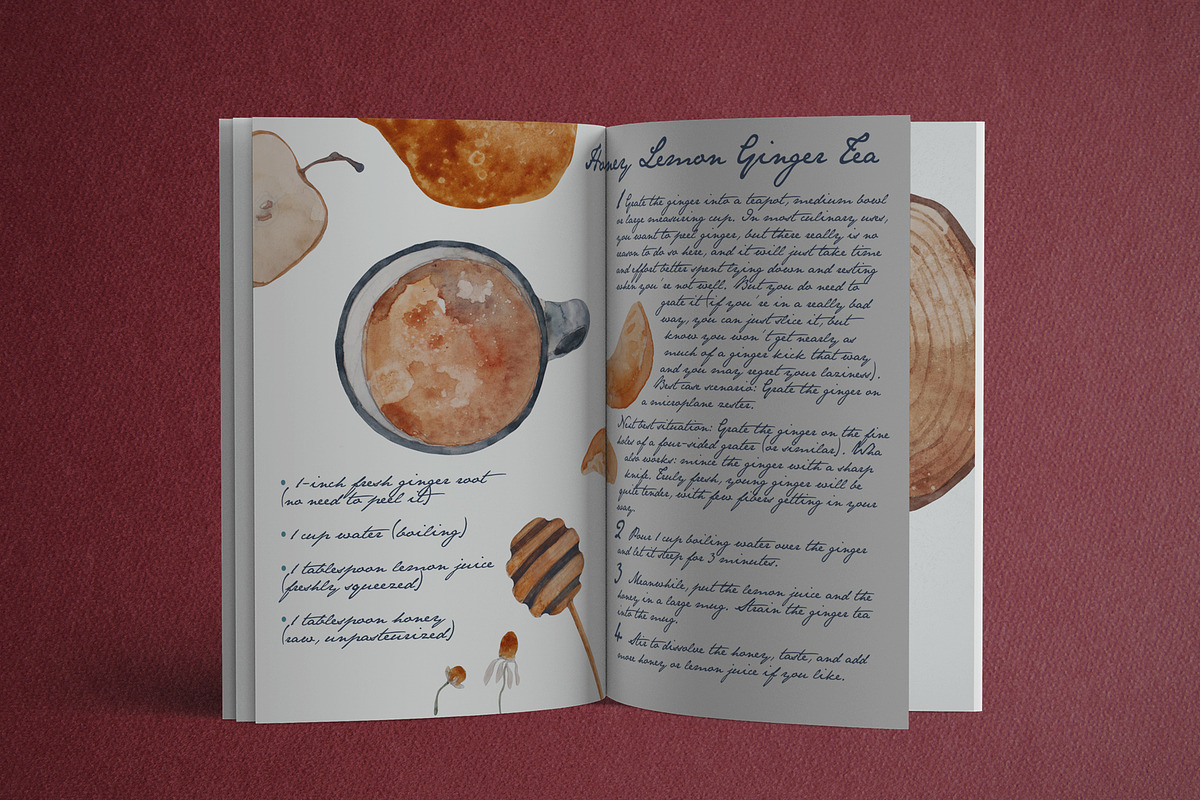 • 1-inch fresh ginger root
(no need to peel it)
• 1 cup water (boiling)
• 1 tablespoon lemon juice
(freshly squeezed)
• 1 tablespoon honey
(raw, unpasteurized)
Honey Lemon Ginger Tea
1 Grate the ginger into a teapot, medium bowl
or large measuring cup. In most culinary uses,
you want to peel ginger, but there really is no
reason to do so here, and it will just take time
and effort better spent lying down and resting
when you're not well. But you do need to
grate it (if you're in a really bad
way, you can just slice it, but
know you won't get nearly as
much of a ginger kick that way
and you may regret your laziness).
Best case scenario: Grate the ginger on
a microplane zester.
Next best situation: Grate the ginger on the fine
holes of a four-sided grater (or similar). Wha
also works: mince the ginger with a sharp
knife. Truly fresh, young ginger will be
quite tender, with few fibers getting in your
way.
2 Pour 1 cup boiling water over the ginger
and let it steep for 3 minutes.
3 Meanwhile, put the lemon juice and the
honey in a large mug. Strain the ginger tea
into the mug.
4 Stir to dissolve the honey, taste, and add
more honey or lemon juice if you like.